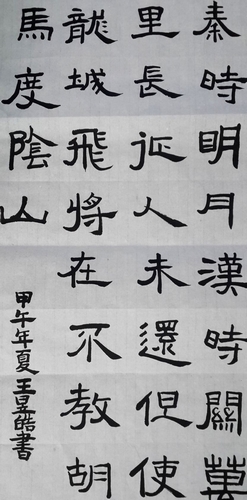 秦時明月漢時關萬
里長征人未還但使
龍城飛將在不教胡
馬度陰山
甲午年夏王昱皓書